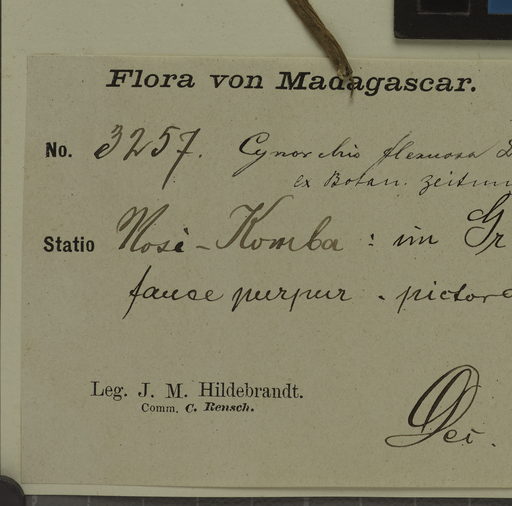 Flora von Madagascar.
No. 3257. Cynorchis flexuosa
ex Botan. Zeitun
Statio Nosi-Komba : im Gr
fauce purpur. pictore
Leg. J. M. Hildebrandt.
Comm. C. Rensch.